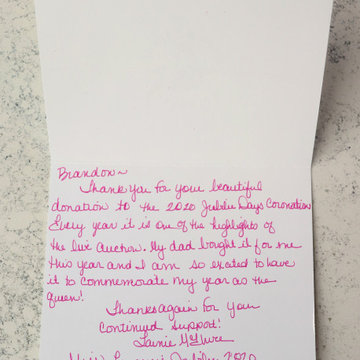 Brandon~
Thank you for your beautiful
donation to the 2020 Jubilee Days Coronation
Every year it is one of the highlights of
the live auction. My dad bought it for me
this year and I am so excited to have
it to commemorate my year as the
queen!
Thanks again for your
continued support!
McGwire
Miss Jubilee 2020